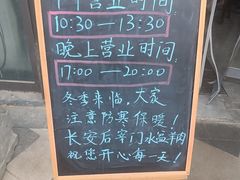 中午营业时间
10:30—13:30
晚上营业时间
17:00—20:00
冬季来临，大家
注意防寒保暖！
长安后宰门水盆羊肉
祝您开心每一天！